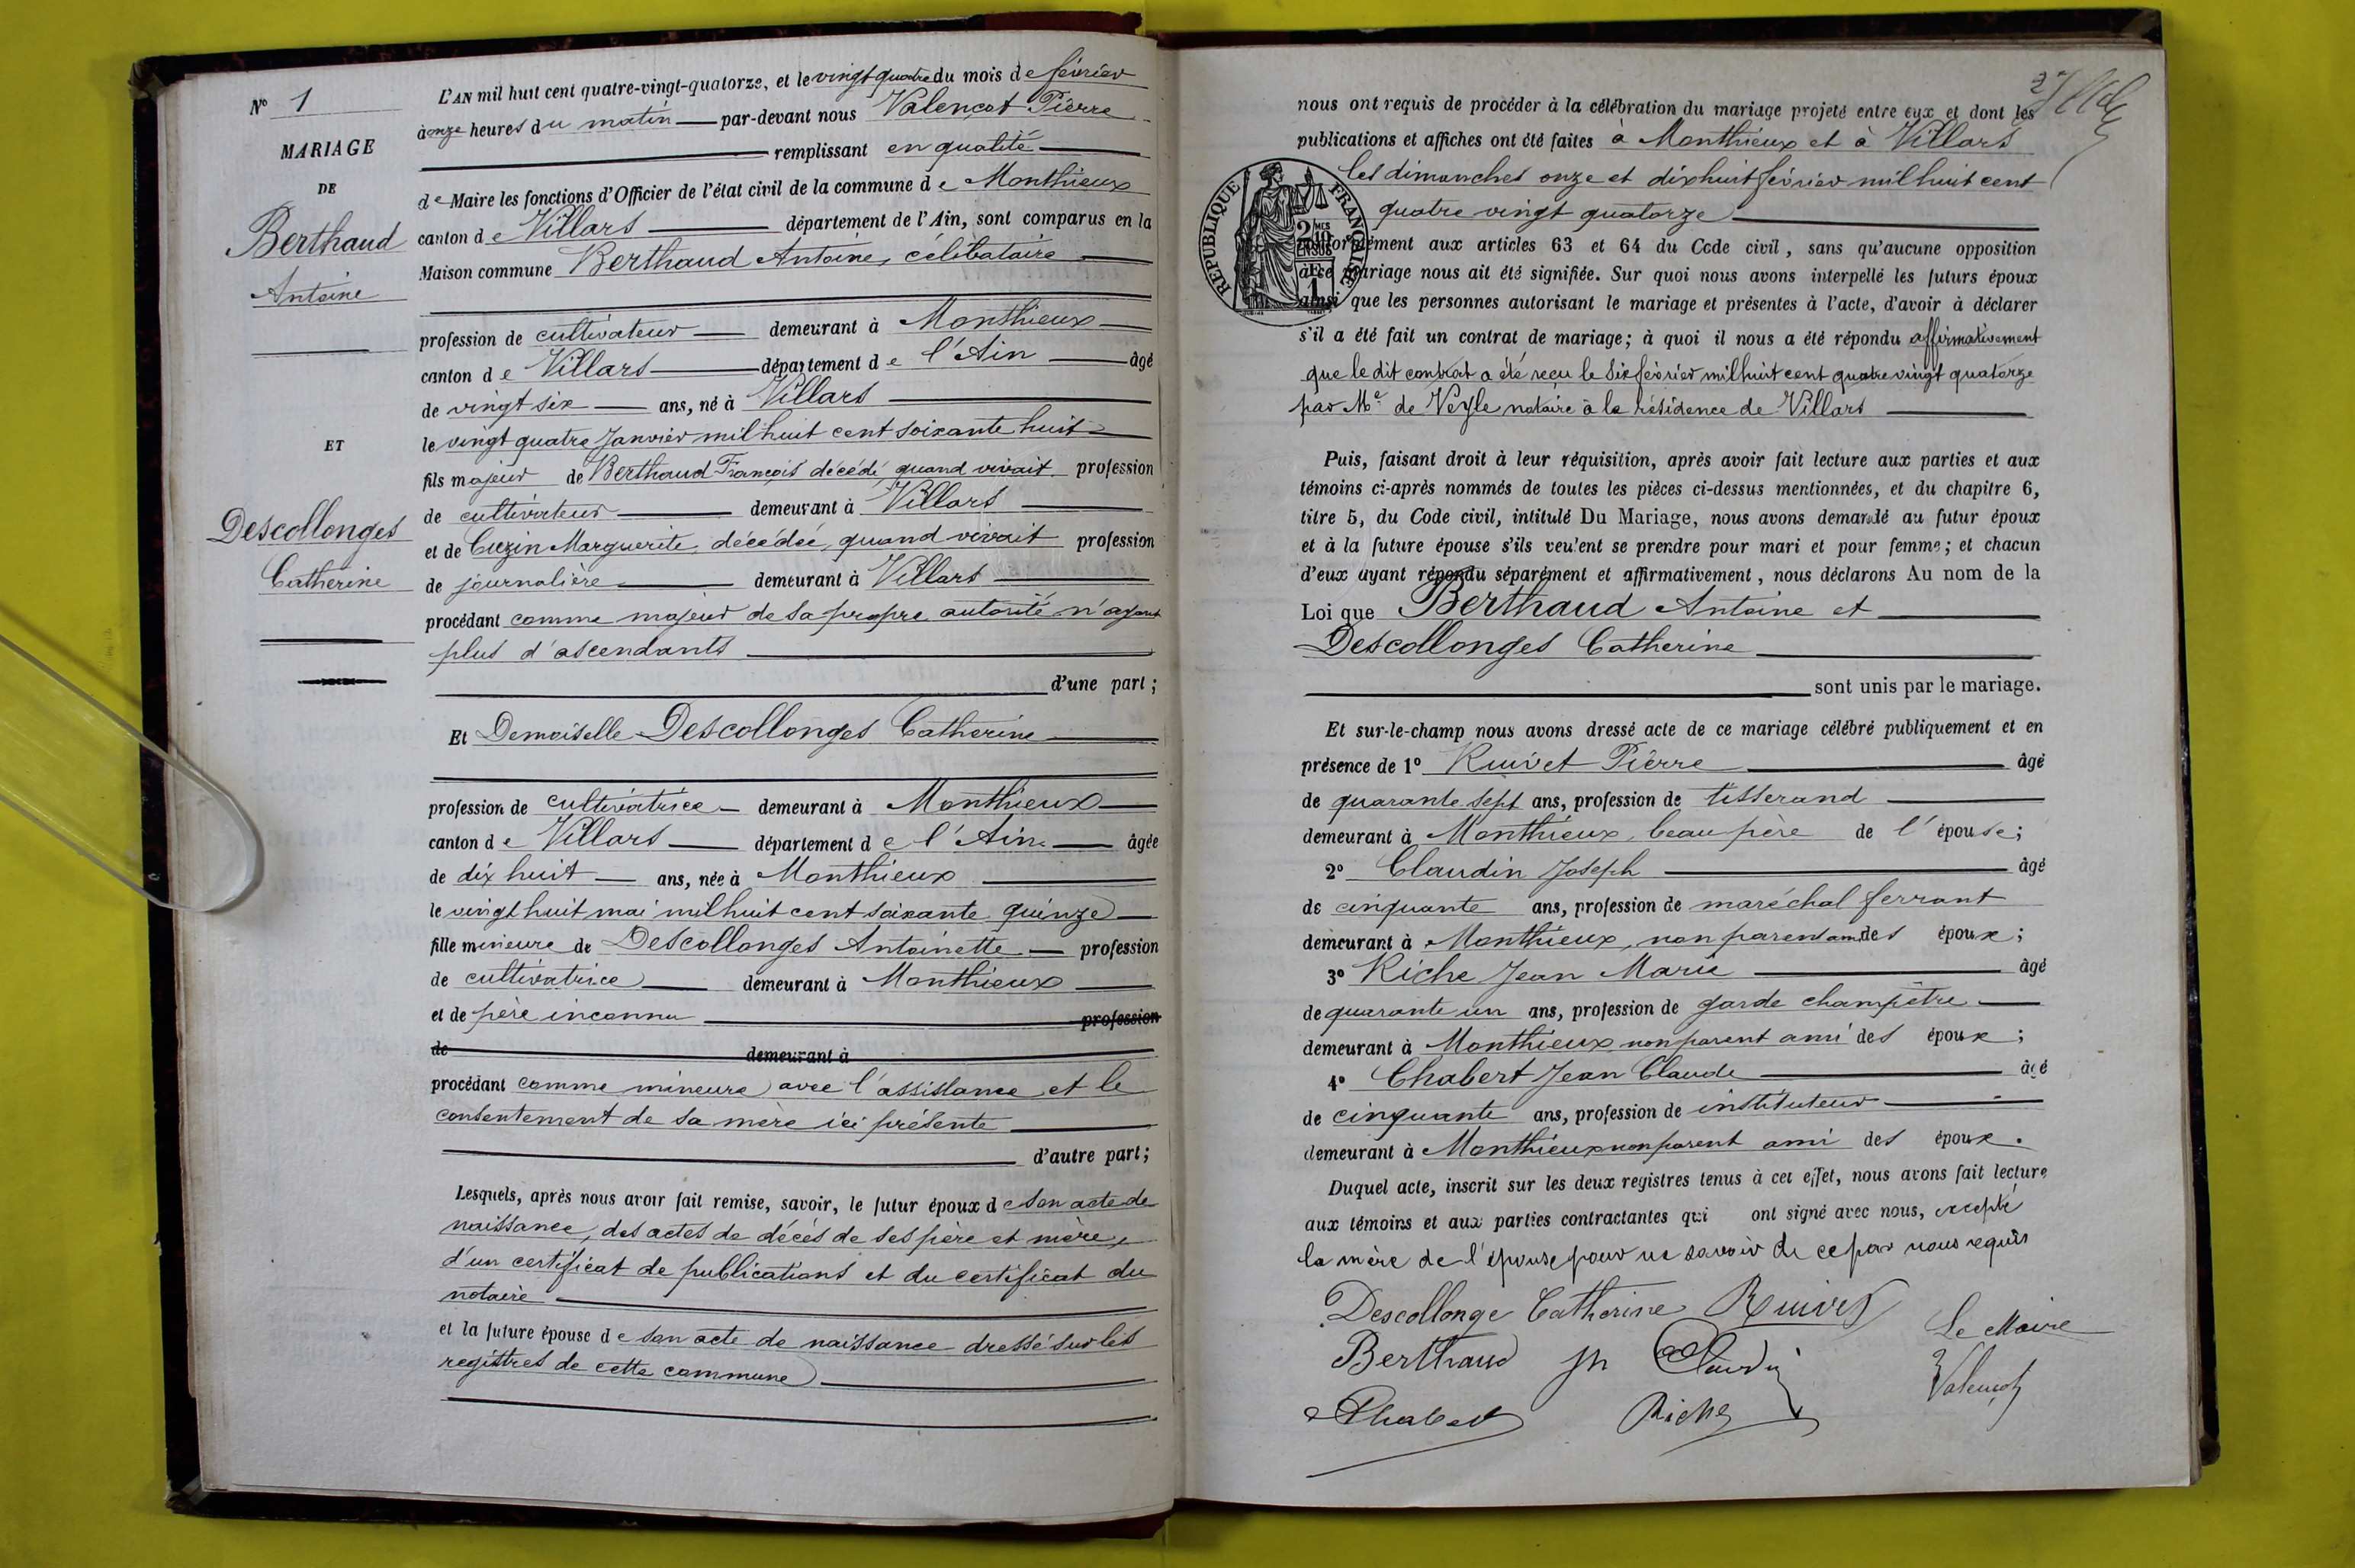 N° 1
MARIAGE
DE
Berthaud
Antoine
ET
Descollonges
Catherine
L'AN mil huit cent quatre-vingt-quatorze, et le vingt quatre du mois de février
à onze heures du matin par-devant nous Valençot Pierre
remplissant en qualité
de Maire les fonctions d'Officier de l'état civil de la commune de Monthieux
canton de Villars département de l'Ain, sont comparus en la
Maison commune Berthaud Antoine, célibataire
profession de cultivateur demeurant à Monthieux
canton de Villars département de l'Ain âgé
de vingt six ans, né à Villars
le vingt quatre Janvier mil huit cent soixante huit
fils majeur de Berthaud François décédé quand vivait profession
de cultivateur demeurant à Villars
et de Cuzin Marguerite, décédée, quand vivait profession
de journalière demeurant à Villars
procédant comme majeur de sa propre autorité n'ayant
plus d'ascendants
d'une part ;
Et Demoiselle Descollonges Catherine
profession de cultivatrice demeurant à Monthieux
canton de Villars département de l'Ain âgée
de dix huit ans, née à Monthieux
le vingt huit mai mil huit cent soixante quinze
fille mineure de Descollonges Antoinette profession
de cultivatrice demeurant à Monthieux
et de père inconnu profession
de demeurant à
procédant comme mineure avec l'assistance et le
consentement de sa mère ici présente
d'autre part ;
Lesquels, après nous avoir fait remise, savoir, le futur époux de son acte de
naissance, des actes de décès de ses père et mère,
d'un certificat de publications et du certificat du
notaire
et la future épouse de son acte de naissance dressé sur les
registres de cette commune
nous ont requis de procéder à la célébration du mariage projeté entre eux et dont les
publications et affiches ont été faites à Monthieux et à Villars
les dimanches onze et dix huit février mil huit cent
quatre vingt quatorze
REPUBLIQUE FRANÇAISE
2 MES 10 EN SUS
1F
conformément aux articles 63 et 64 du Code civil, sans qu'aucune opposition
à ce mariage nous ait été signifiée. Sur quoi nous avons interpellé les futurs époux
ainsi que les personnes autorisant le mariage et présentes à l'acte, d'avoir à déclarer
s'il a été fait un contrat de mariage ; à quoi il nous a été répondu affirmativement
que le dit contrat a été reçu le six février mil huit cent quatre vingt quatorze
par Me de Veyle notaire à la résidence de Villars
Puis, faisant droit à leur réquisition, après avoir fait lecture aux parties et aux
témoins ci-après nommés de toutes les pièces ci-dessus mentionnées, et du chapitre 6,
titre 5, du Code civil, intitulé Du Mariage, nous avons demandé au futur époux
et à la future épouse s'ils veulent se prendre pour mari et pour femme ; et chacun
d'eux ayant répondu séparément et affirmativement, nous déclarons Au nom de la
Loi que Berthaud Antoine et
Descollonges Catherine
sont unis par le mariage.
Et sur-le-champ nous avons dressé acte de ce mariage célébré publiquement et en
présence de 1° Ruivet Pierre âgé
de quarante sept ans, profession de tisserand
demeurant à Monthieux, beau père de l'épouse ;
2° Claudin Joseph âgé
de cinquante ans, profession de maréchal ferrant
demeurant à Monthieux, non parent ami des époux ;
3° Riche Jean Marie âgé
de quarante un ans, profession de garde champêtre
demeurant à Monthieux non parent ami des époux ;
4° Chabert Jean Claude âgé
de cinquante ans, profession de instituteur
demeurant à Monthieux non parent ami des époux.
Duquel acte, inscrit sur les deux registres tenus à cet effet, nous avons fait lecture
aux témoins et aux parties contractantes qui ont signé avec nous, excepté
la mère de l'épouse pour ne savoir de ce par nous requis
Descollonge Catherine Ruivet
Le Maire
Berthaud Jh Claudin
Valençot
Chabert Riche